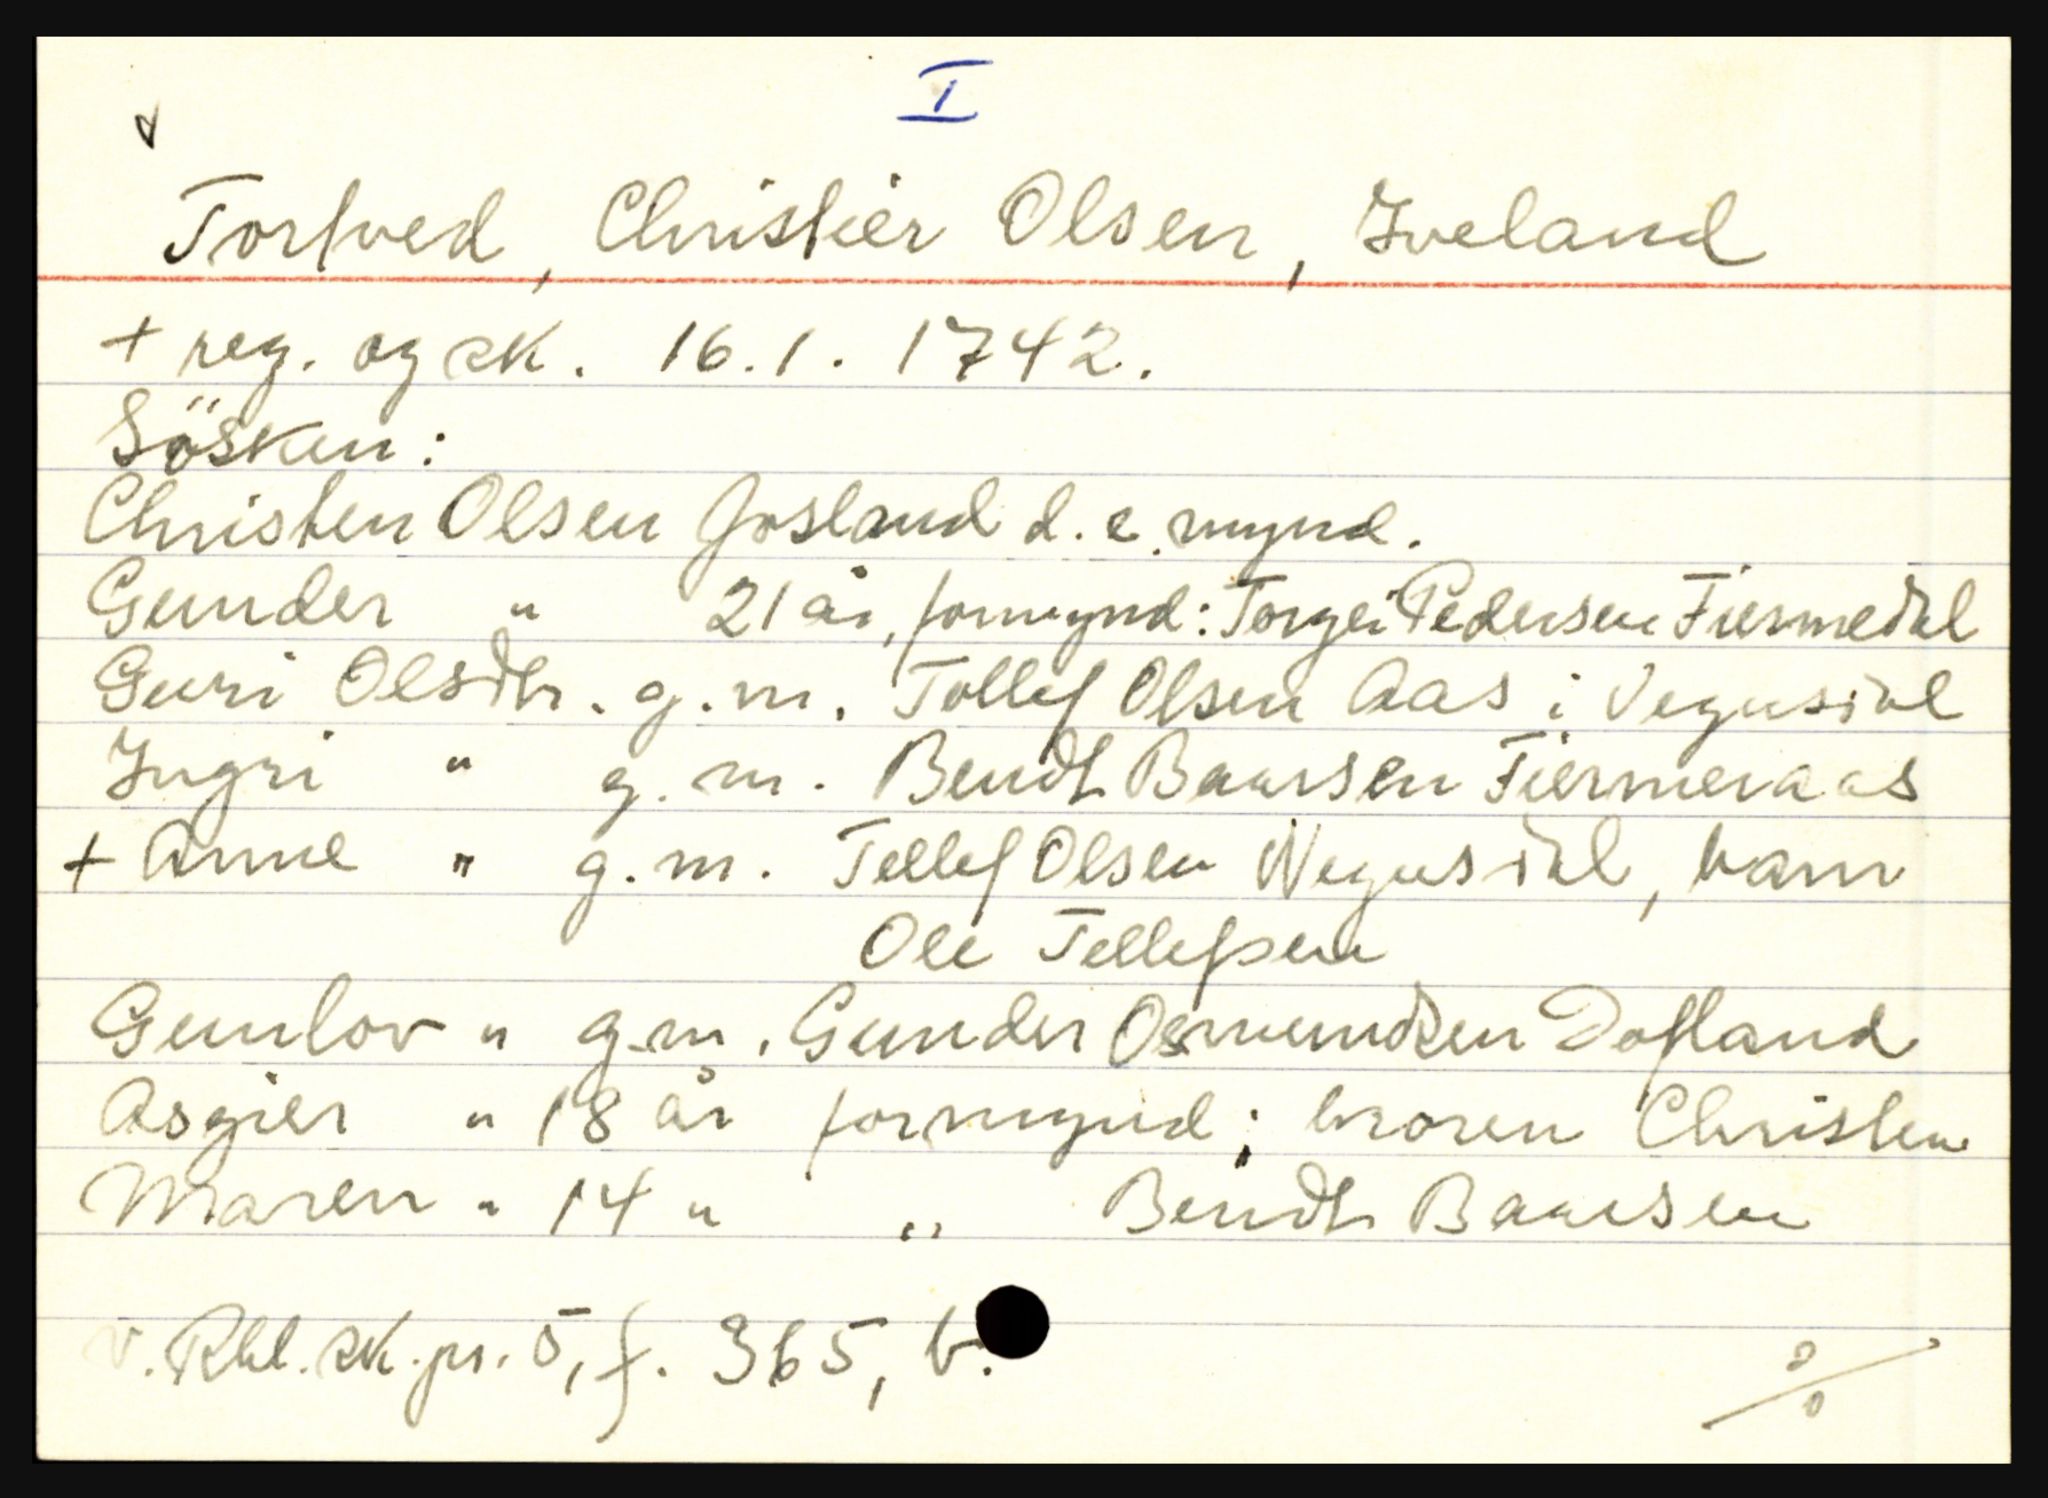 I
Tortved, Christier Olsen, Iveland
+ reg. og sk. 16.1. 1742.
Søsken:
Christen Olsen Josland d. e. mynd.
Gunder " 21 år, formynd: Torgei Pedersen Fiermedal
Guri Olsdtr. g.m. Tollef Olsen Aas i Vegusdal
Ingri " g.m. Bendt Baarsen Fiermeraas
+ Anne " g.m. Tellef Olsen Wegusdal, barn
Ole Tellefsen
Gunlov " g.m. Gunder Osmundsen Dofland
Asgier " 18 år formynd: broren Christen
Maren " 14 " " Bendt Baarsen
v. Rbl. sk. pr. 5, f. 365, b.
%